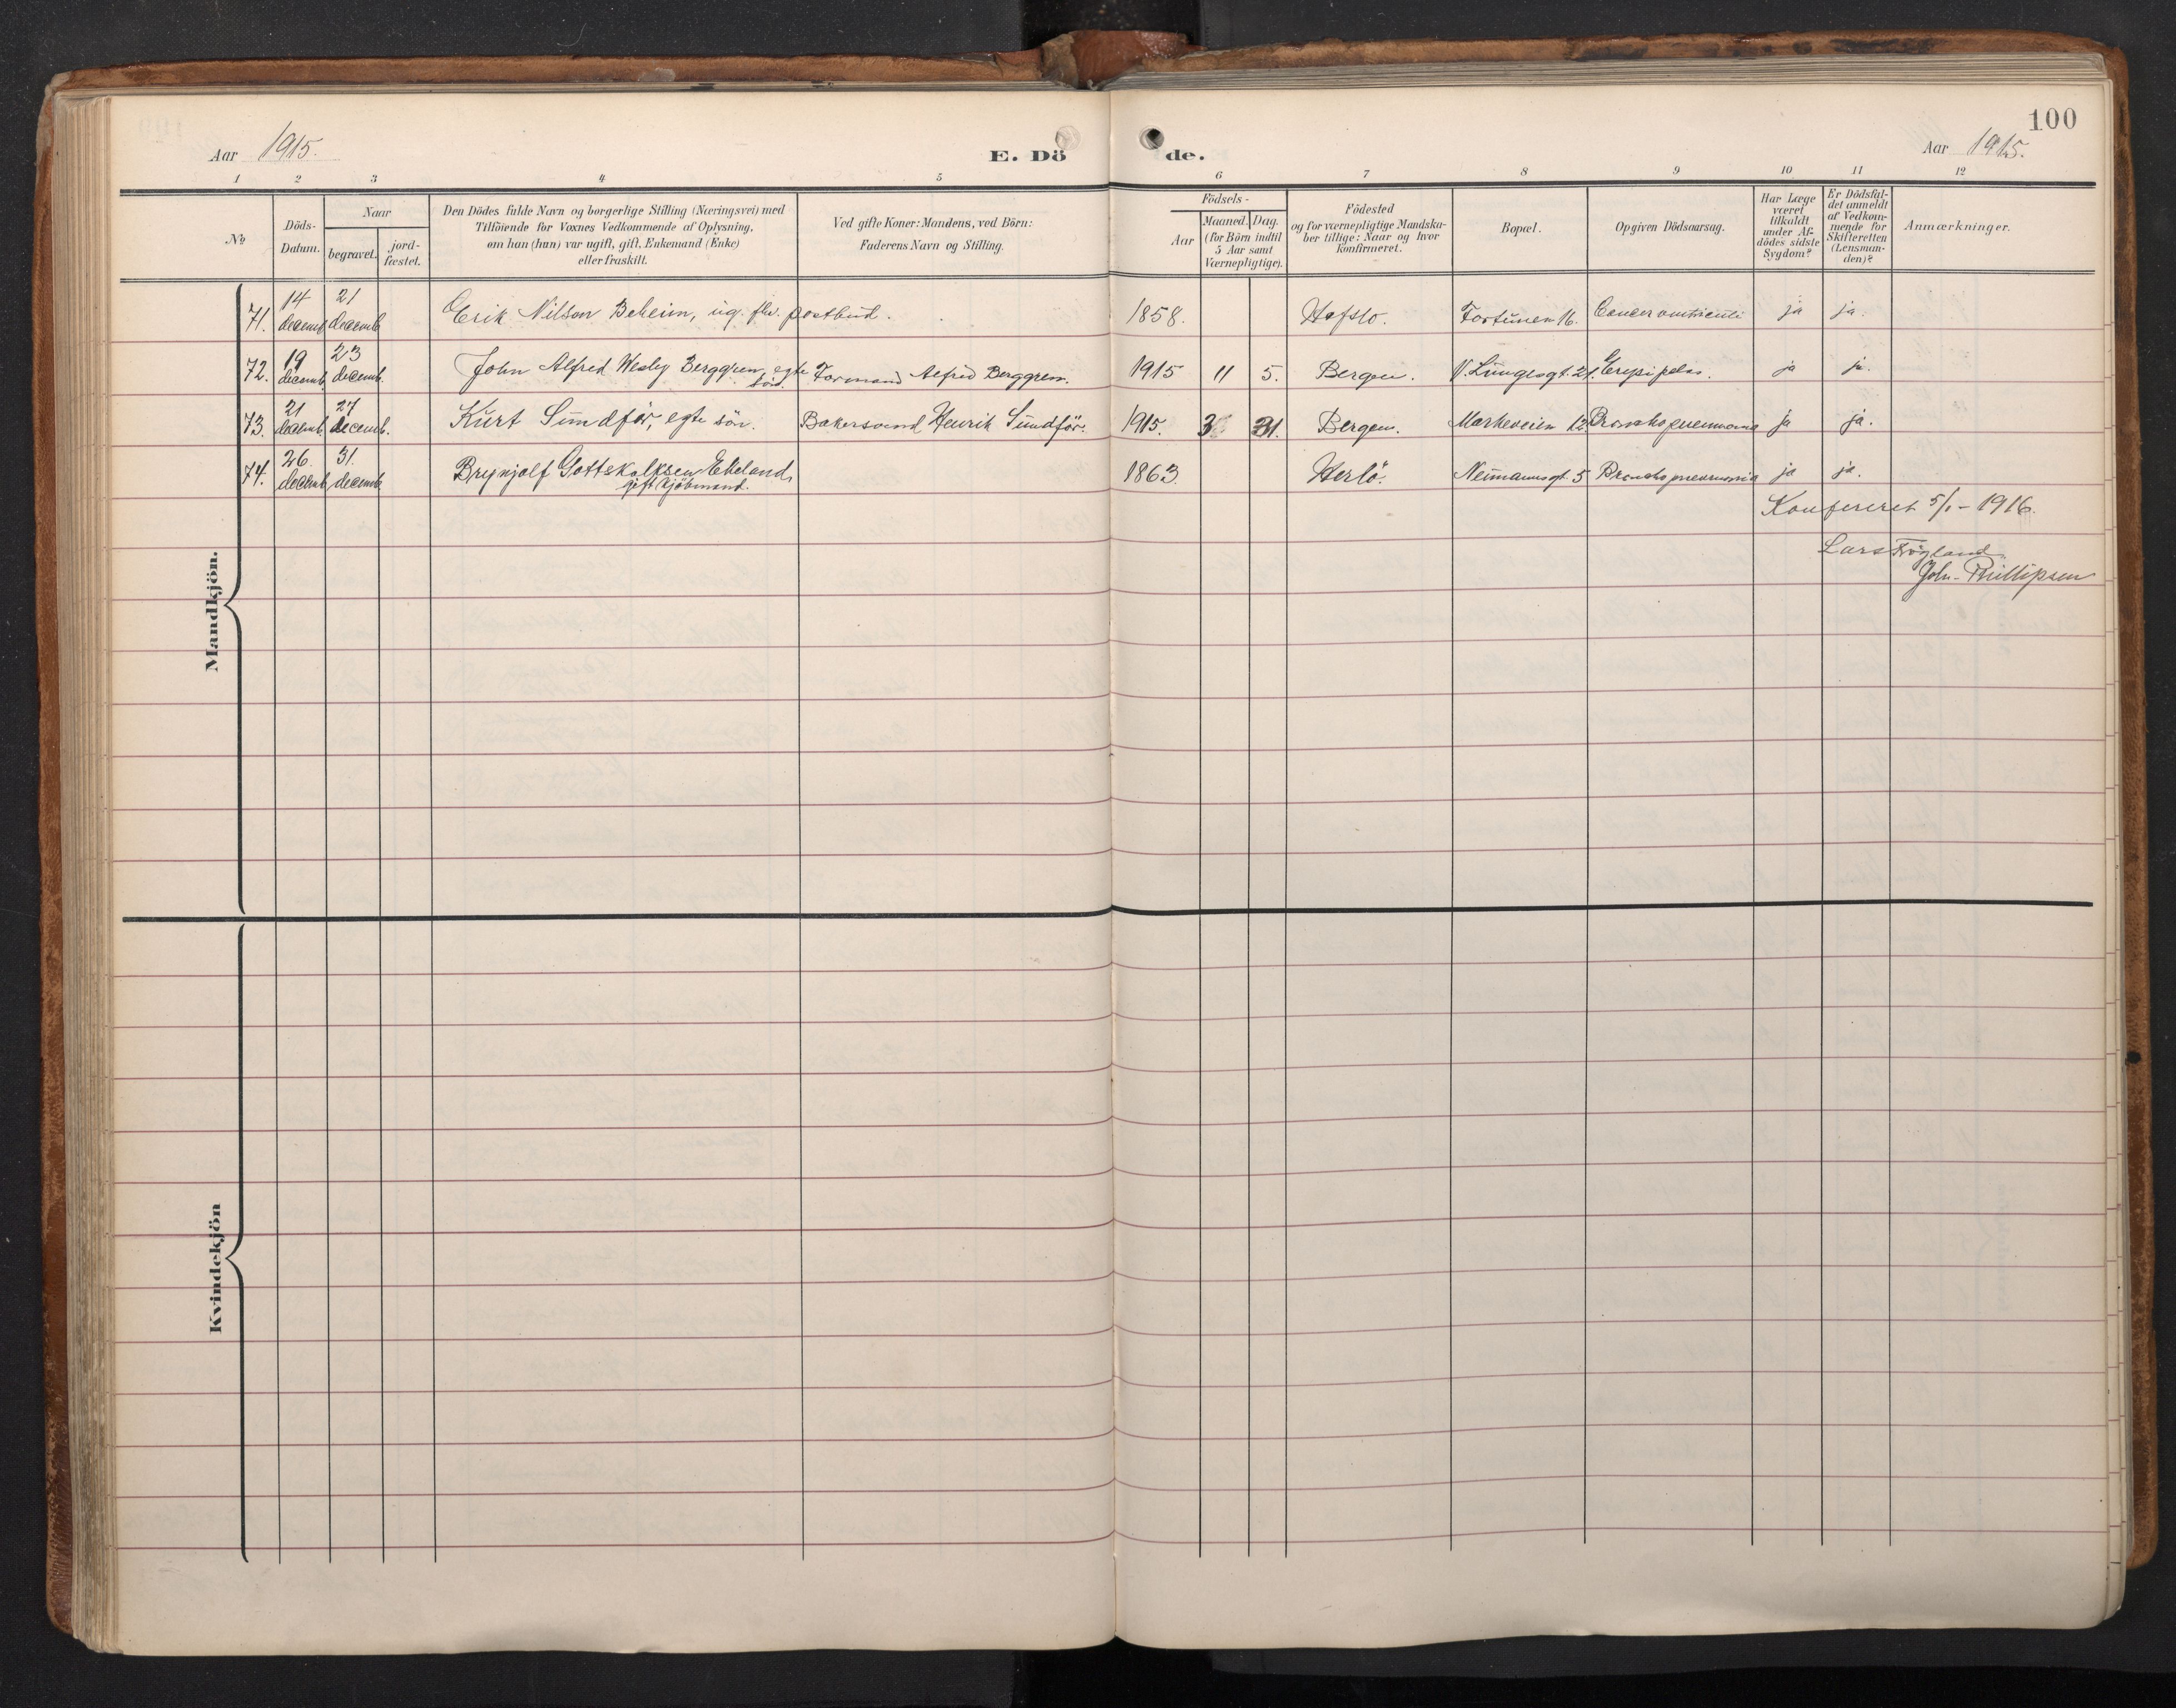 100
Aar 1915.
E. Dö de.
Aar 1915.
1 2 3 4 5 6 7 8 9 10 11 12
No
Döds-
Datum.
Naar
begravet.
jord-
fæstet.
Den Dödes fulde Navn og borgerlige Stilling (Næringsvei) med
Tilföiende for Voxnes Vedkommende af Oplysning,
om han (hun) var ugift, gift, Enkemand (Enke)
eller fraskilt.
Ved gifte Koner: Mandens, ved Börn:
Faderens Navn og Stilling.
Födsels-
Aar
Maaned.
Dag.
(for Börn indtil
5 Aar samt
Værnepligtige).
Födested
og for værnepligtige Mandska-
ber tillige: Naar og hvor
konfirmeret.
Bopæl.
Opgiven Dödsaarsag.
Har Læge
været
tilkaldt
under Af-
dödes sidste
Sygdom?
Er Dödsfal-
det anmeldt
af Vedkom-
mende for
Skifteretten
(Lensman-
den)?
Anmærkninger.
Mandkjön.
71. 14 decemb. 21 decemb. Erik Nilsen Beheim, ug. fhv. postbud. 1858. Hafslo. Fortunen 16. Cancer ventriculi ja ja.
72. 19 decemb. 23 decemb. John Alfred Wesley Berggren, egte sön. Formand Alfred Berggren. 1915 11 5. Bergen. V. Lungegt. 21. Erysipelas. ja ja.
73. 21 decemb. 27 decemb. Kurt Sundför, egte sön. Bakersvend Henrik Sundför. 1915. 3 31. Bergen. Markeveien 12. Bronchopneumonia ja ja.
74. 26. decemb. 31. decemb. Brynjolf Gottskalksen Ekeland, gift kjöbmand. 1863. Herlö. Neumannsgt. 5 Bronchopneumonia ja ja.
Konfereret 5/1 - 1916.
Lars
Joh. Phillipsen
Kvindekjön